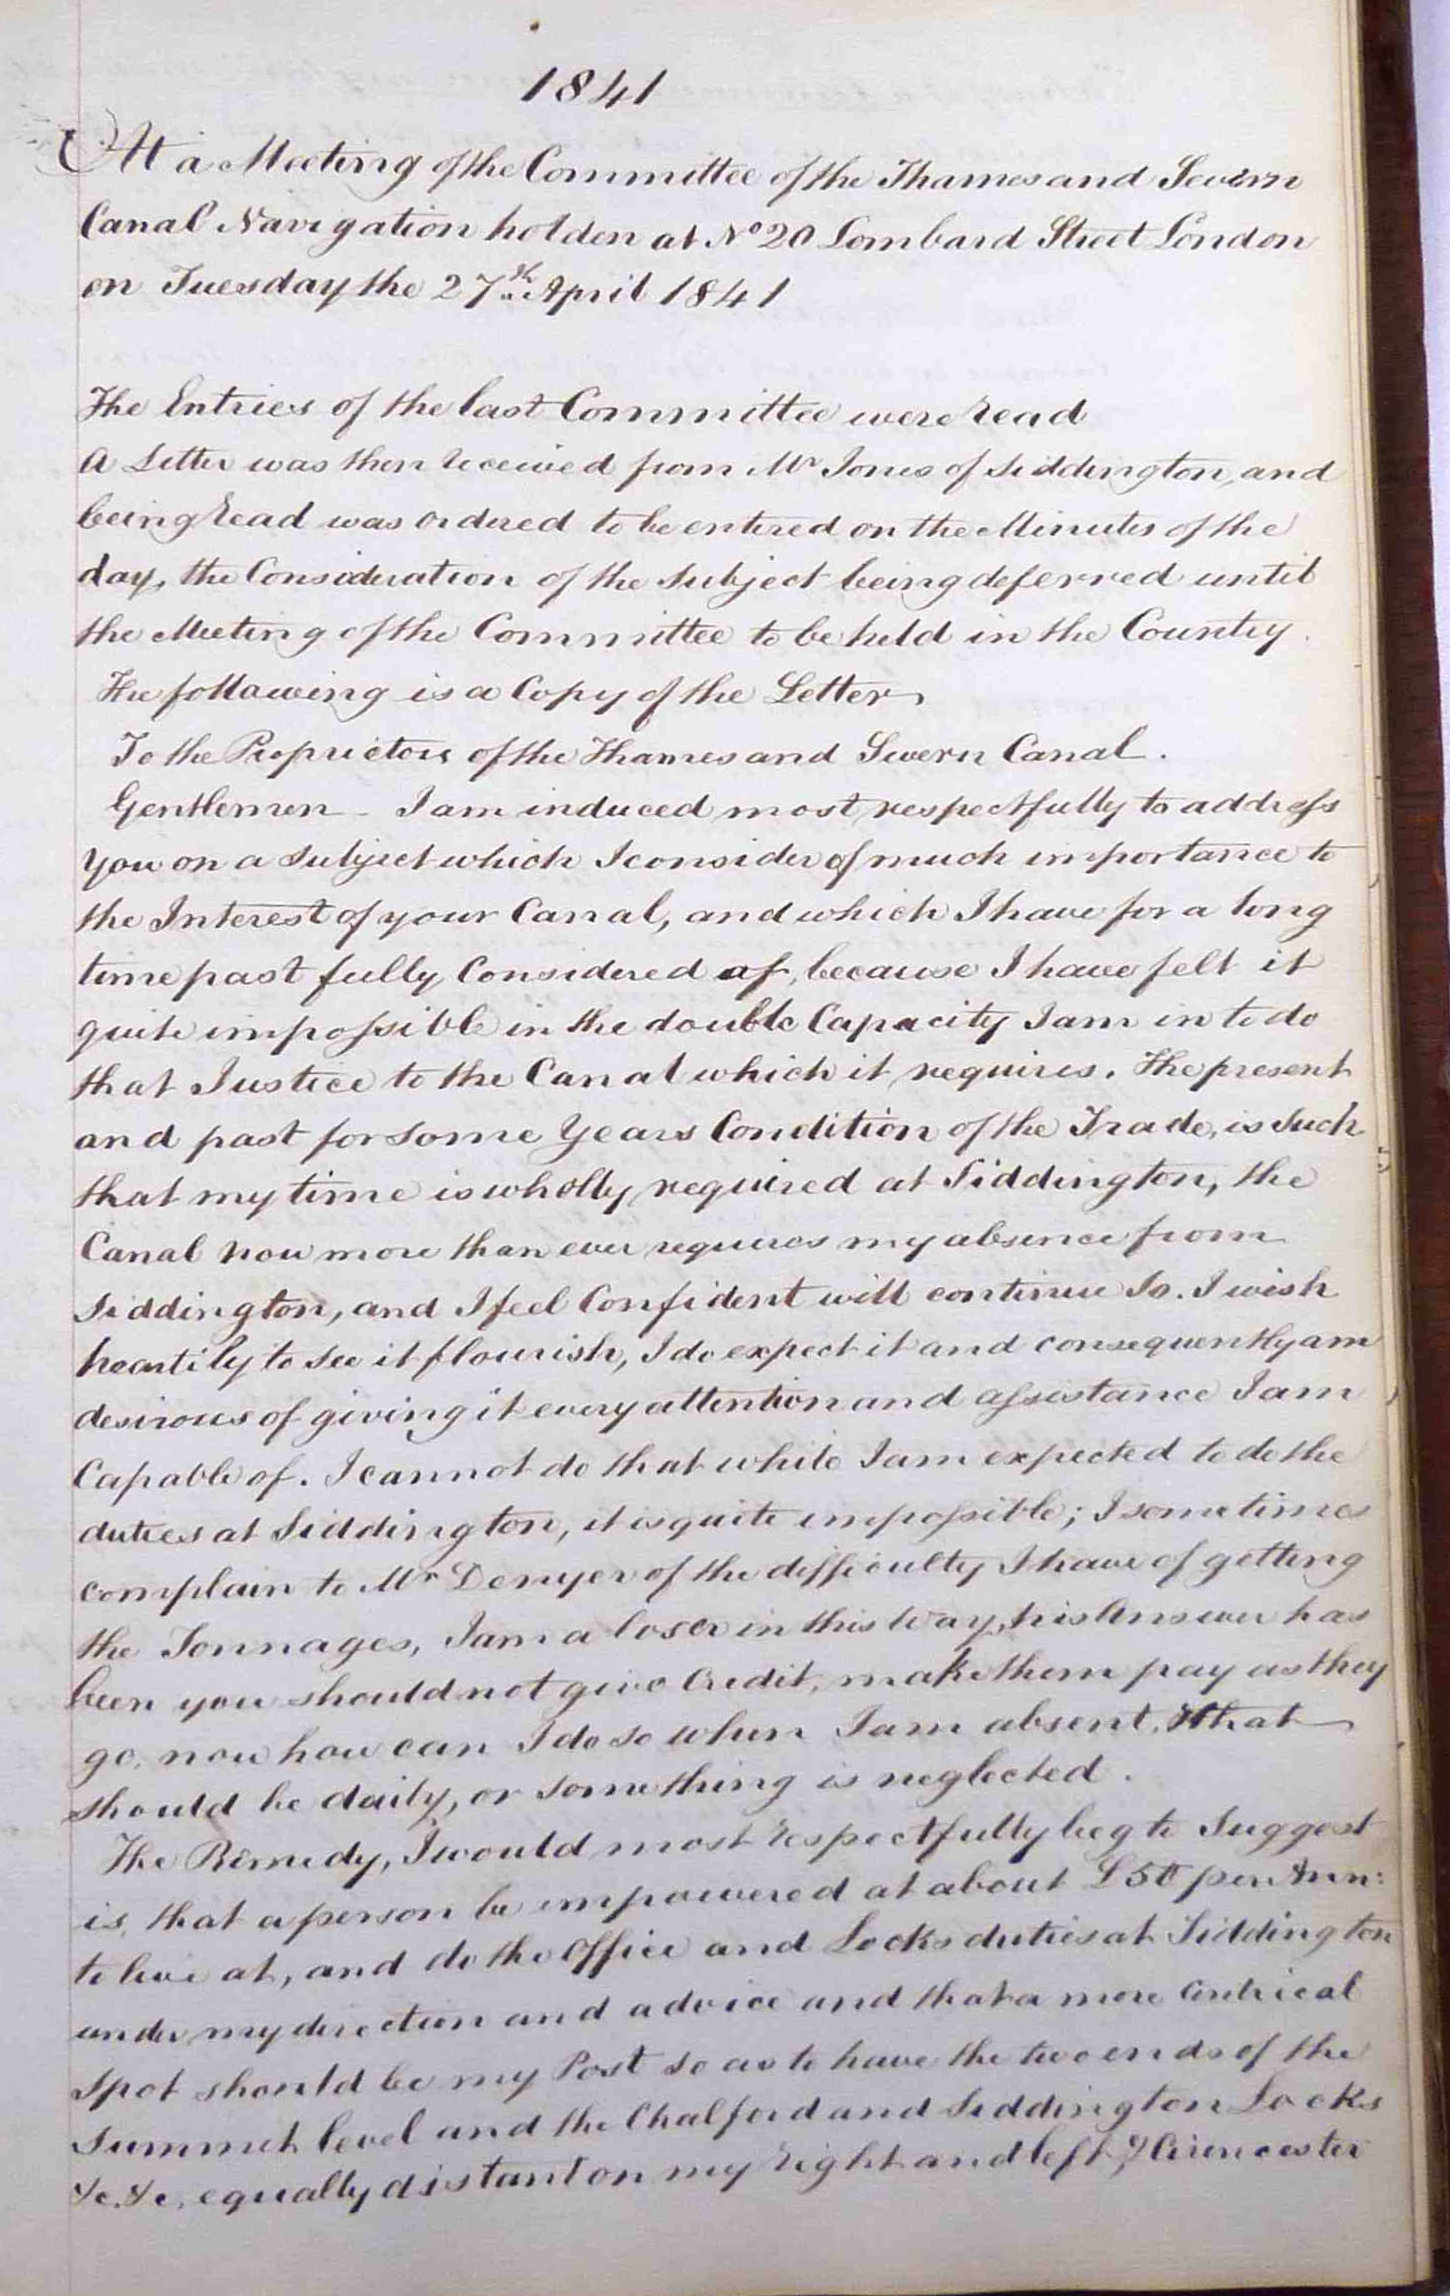 1841
At a Meeting of the Committee of the Thames and Severn
Canal Navigation holden at No 20 Lombard Street London
on Tuesday the 27th April 1841
The Entries of the last Committee were read
A Letter was then received from Mr Jones of Siddington, and
being read was ordered to be entered on the Minutes of the
day, the Consideration of the Subject being deferred until
the Meeting of the Committee to be held in the Country.
The following is a Copy of the Letter,
To the Proprietors of the Thames and Severn Canal.
Gentlemen - I am induced most respectfully to address
you on a Subject which I consider of much importance to
the Interest of your Canal, and which I have for a long
time past fully Considered of, because I have felt it
quite impossible in the double Capacity I am in to do
that Justice to the Canal which it requires. The present
and past for some Years Condition of the Trade, is Such
that my time is wholly required at Siddington, the
Canal now more than ever requires my absence from
Siddington, and I feel Confident will continue So. I wish
heartily to See it flourish, I do expect it and consequently am
desirous of giving it every attention and assistance I am
Capable of. I cannot do that while I am expected to do the
duties at Siddington, it is quite impossible; I sometimes
complain to Mr Denyer of the difficulty I have of getting
the Tonnages, I am a loser in this Way, his Answer has
been you should not give Credit, make them pay as they
go, now how can I do so when I am absent, that
should be daily, or Something is neglected.
The Remedy, I would most respectfully beg to Suggest
is, that a person be impowered at about £50 per Ann:
to live at, and do the Office and Locks duties at Siddington
under my direction and advice and that a more Centrical
Spot should be my Post So as to have the two ends of the
Summit level and the Chalford and Siddington Locks
&c. &c. equally distant on my right and left, & Cirencester